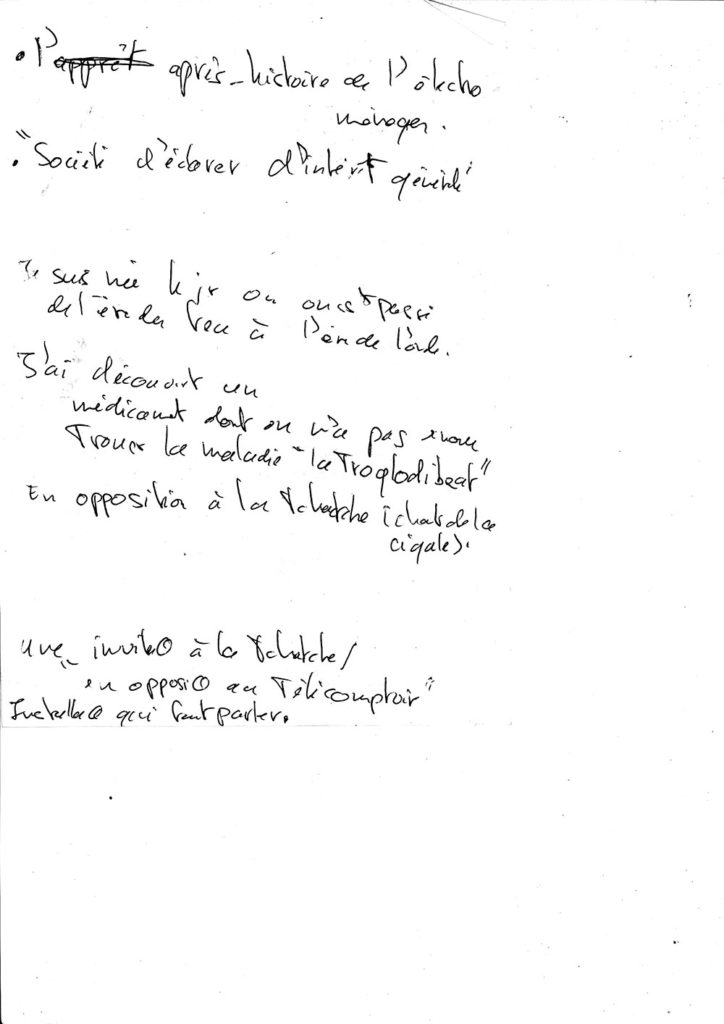 • l' après-histoire de l'
manager.
• "Société d' d'intérêt général"
Je suis née le jr où on est passé
de l'ère du feu à l'ère de l'
J'ai découvert un
médicament dont on n'a pas encore
Trouver la maladie "la Troglodibeat"
En opposition à la Tchatche (chat de la
cigale).
une invit@ à la Tchatche/
"en opposi@ au Télécomptoir"
Install@ qui faut parler.